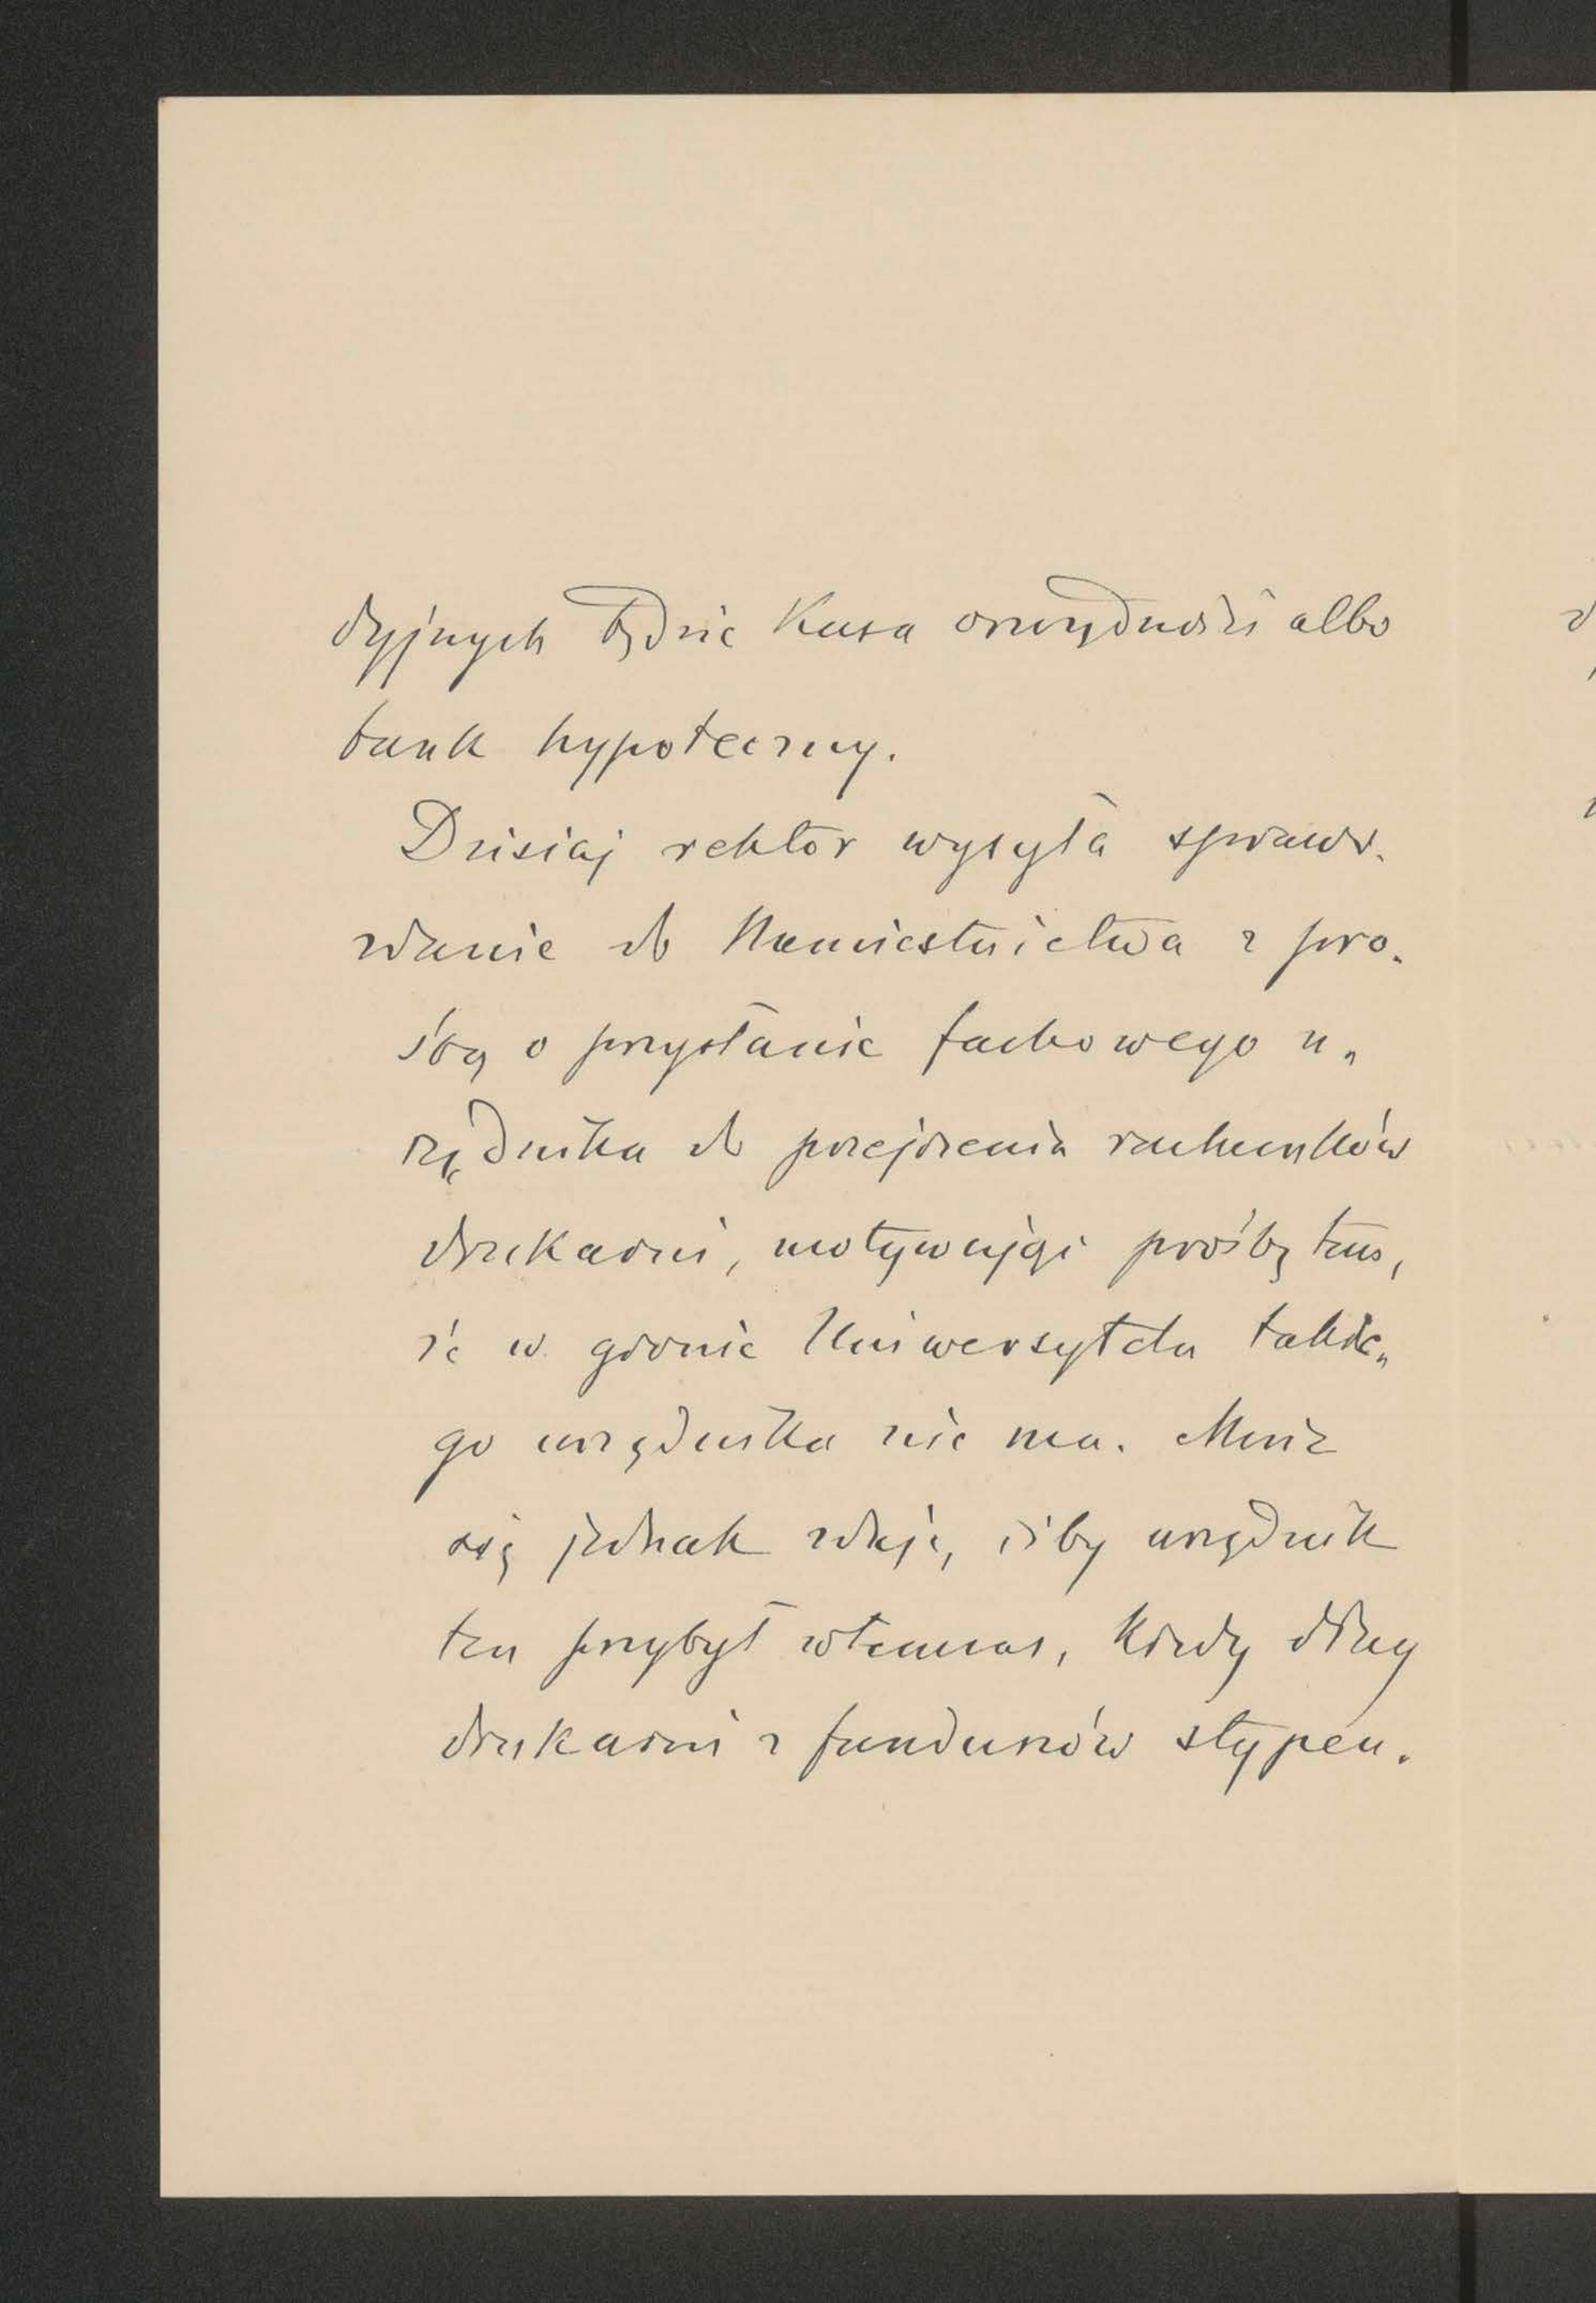 dyjnych będzie Kasa oszczędności albo
bank hypoteczny.
Dzisiaj rektor wysyła sprawo-
zdanie do Namiestnictwa z pro-
śbą o przysłanie fachowego u„
rzędnika do przejrzenia rachunków
drukarni, motywując prośbę tem,
że w gronie Uniwersytetu takie„
go urzędnika nie ma. Mnie
się jednak zdaje, iżby urzędnik
ten przybył wtenczas, kiedy długi
drukarni z funduszów stypen-